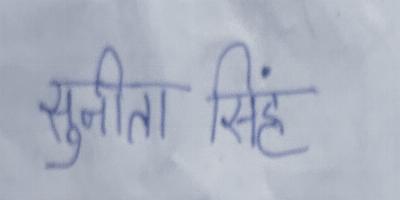 सुनीता सिंह